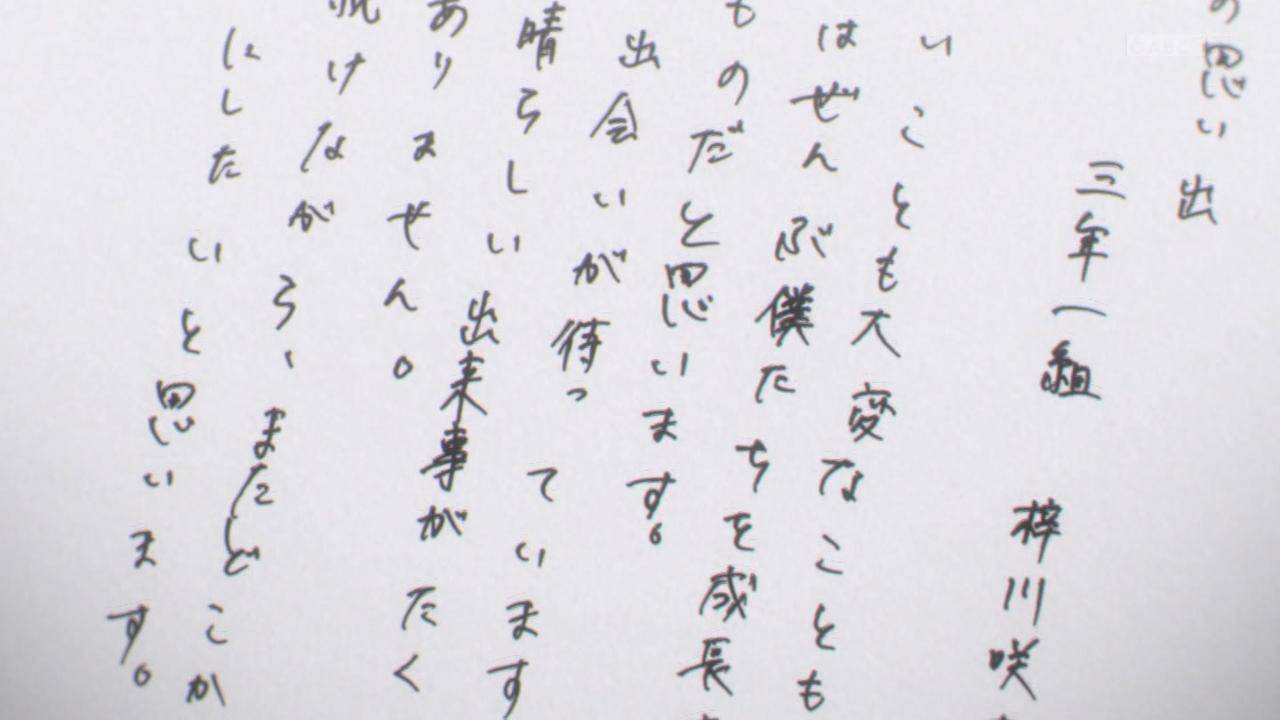 の思い出
三年一組　梓川咲
いことも大変なことも
はぜんぶ僕たちを成長
ものだと思います。
出会いが待っています
晴らしい出来事がたく
ありません。
けながら、またどこか
にしたいと思います。